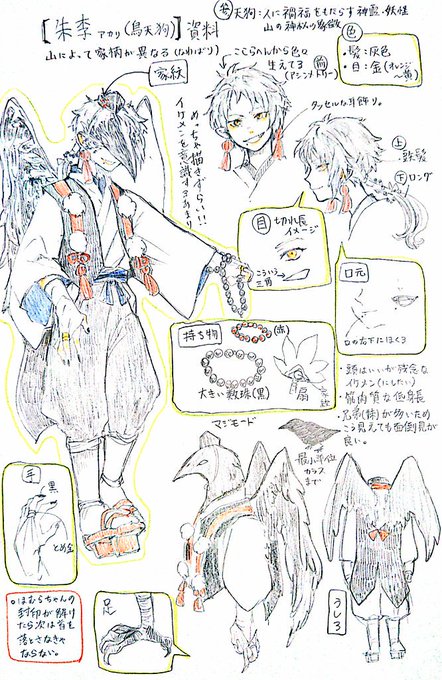 【朱李 アカリ (烏天狗)】資料
山によって家柄が異なる(なわばり)
㊟天狗:人に禍福をもたらす神霊、妖怪
山の神秘の象徴
色
・髪:灰色
・目:金(オレンジ
〜黄)
家紋
ここらへんから色々
生えてる
(アシンメトリー)
前
タッセルな耳飾り。
めっちゃ描きずらい!!!
イケメンを意識するあまり
上
短髪
下
ロング
目
切れ長
イメージ
こういう
三角
口元
口の右下にほくろ
持ち物
(赤)
大きい数珠(黒)
扇
家紋
・頭はいいが残念な
イケメン(にしたい)
・筋肉質な高身長
・兄弟(妹)が多いため
こう見えても面倒見が
良い。
マジモード
最小単位
カラス
まで
手
黒
とめ金
足
うしろ
○ほむらちゃんの
封印が解け
たら次は首を
落とさなきゃ
ならない。